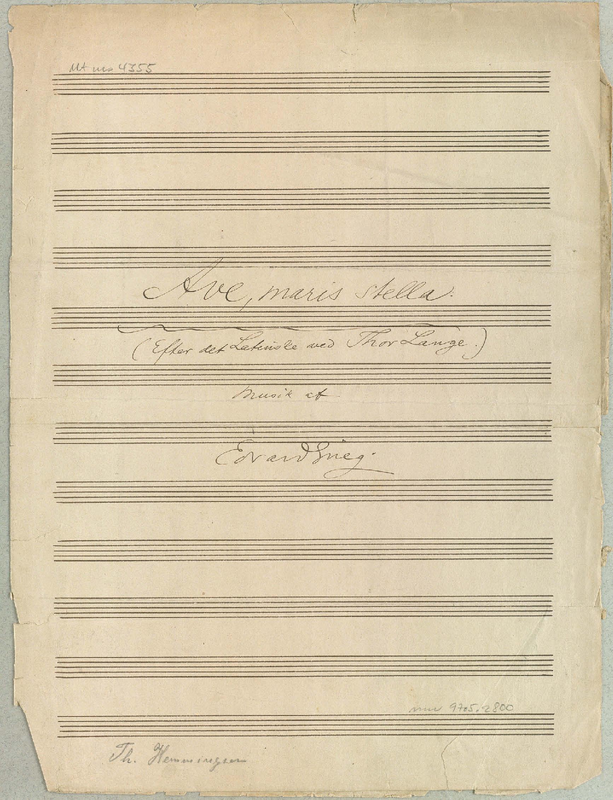 Mt ms 4355
Ave, maris stella.
(Efter det Latinske ved Thor Lange.)
Musik af
Edvard Grieg.
97.5.2800
Th. Hemmingsen